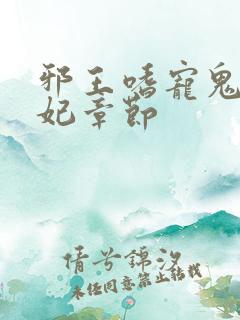 邪王嗜寵鬼
妃章節
倩兮錦汐
未经同意禁止转载